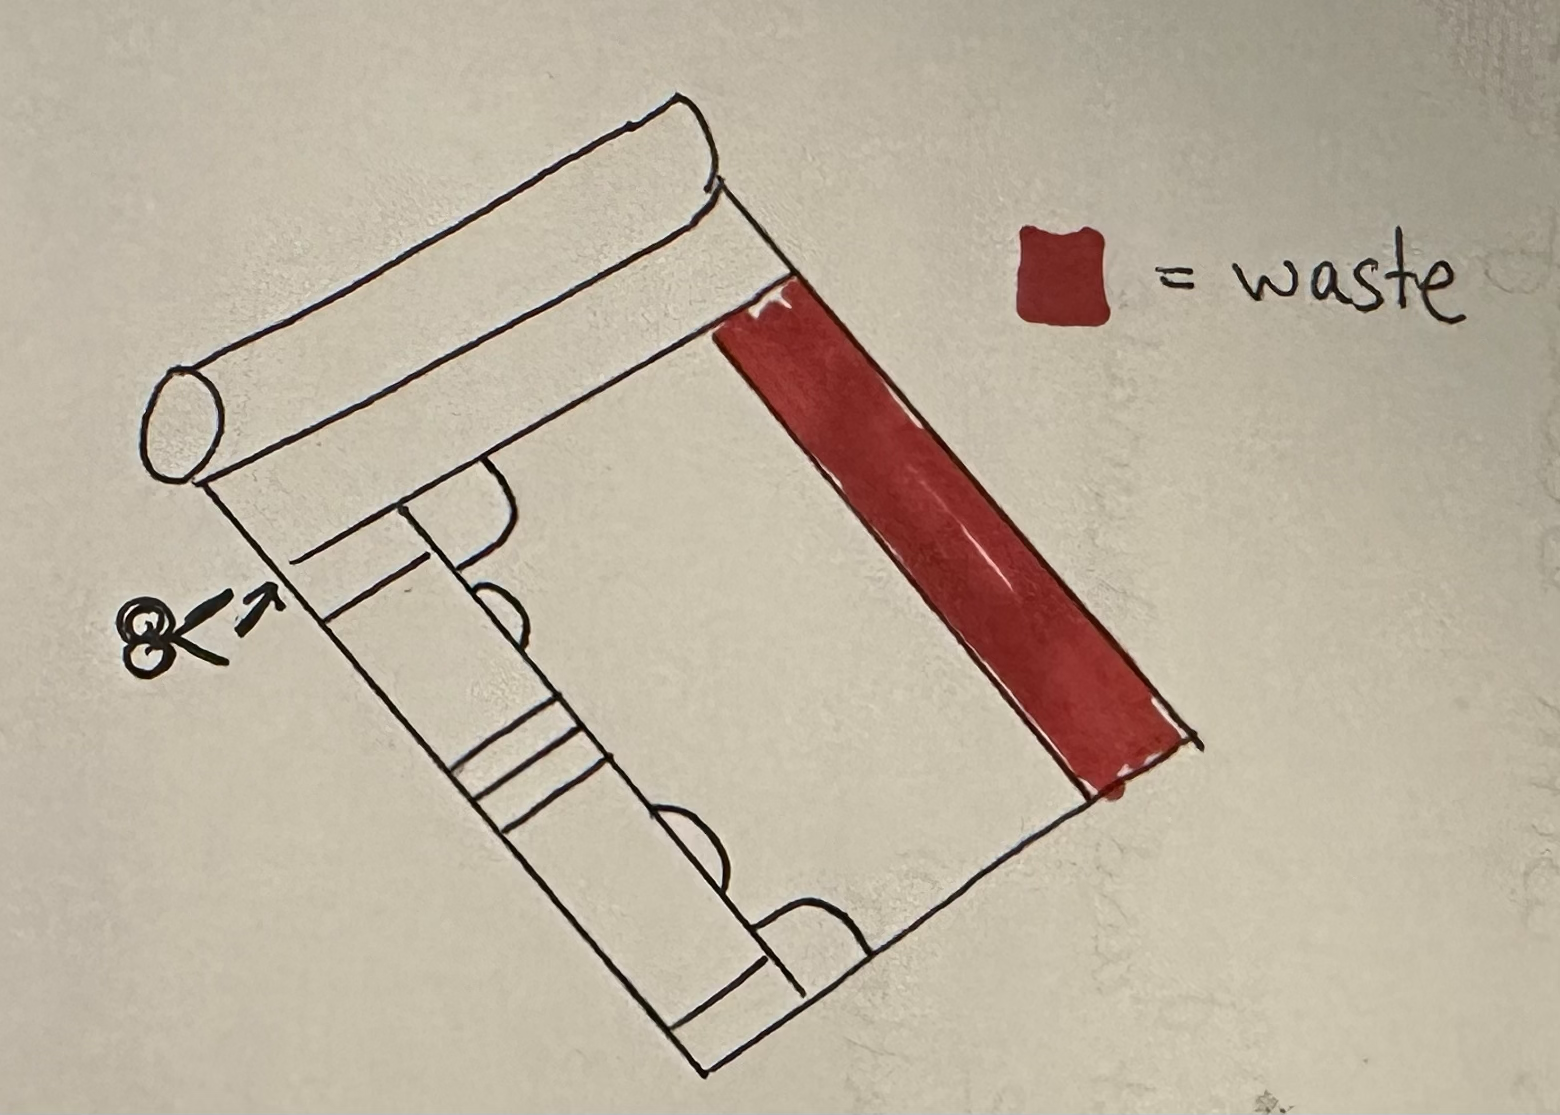 = waste